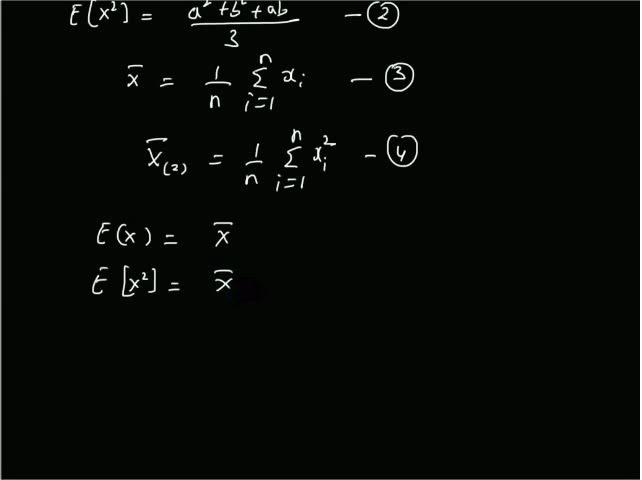 E[x²] = a²+b²+ab / 3 — ②
x̄ = 1/n Σ i=1 n xᵢ — ③
x̄₍₂₎ = 1/n Σ i=1 n xᵢ² — ④
E(x) = x̄
E[x²] = x̄